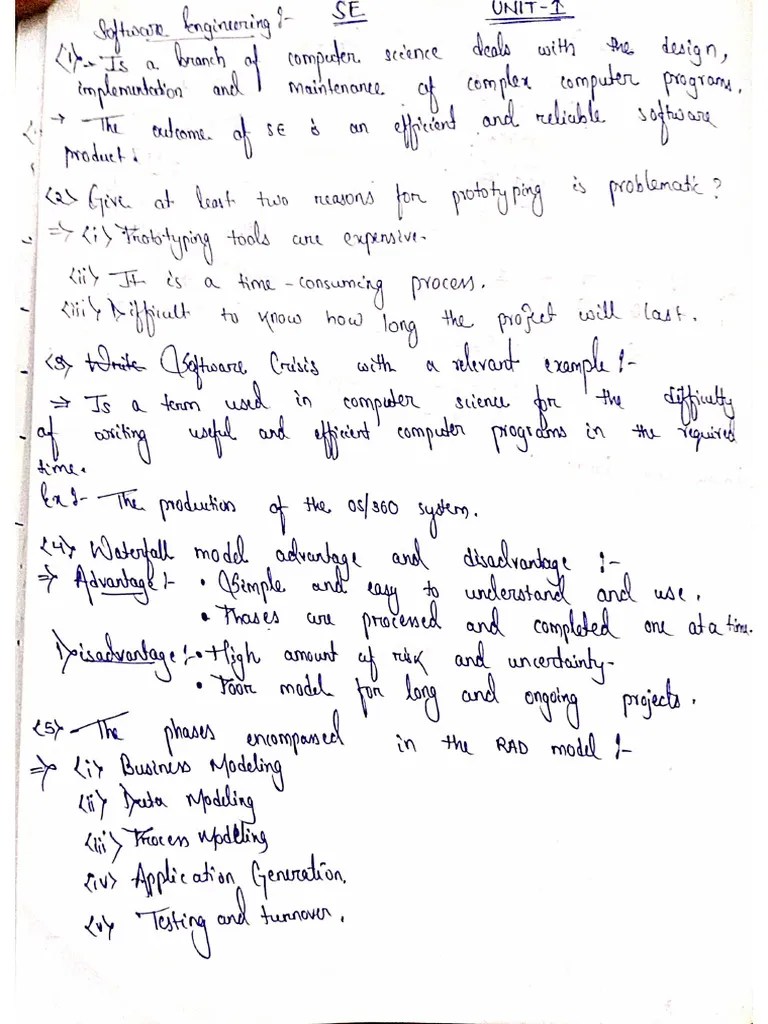 SE UNIT-I
Software Engineering :-
<1> - Is a branch of computer science deals with the design,
implementation and maintenance of complex computer programs.
→ The outcome of SE is an efficient and reliable software
product.
<2> Give at least two reasons for prototyping is problematic?
⇒ <i> Prototyping tools are expensive.
<ii> It is a time-consuming process.
<iii> Difficult to know how long the project will last.
<3> Write Software Crisis with a relevant example :-
⇒ Is a term used in computer science for the difficulty
of writing useful and efficient computer programs in the required
time.
Ex :- The production of the OS/360 system.
<4> Waterfall model advantage and disadvantage :-
⇒ Advantage :- • Simple and easy to understand and use.
• Phases are processed and completed one at a time.
Disadvantage :- • High amount of risk and uncertainty-
• Poor model for long and ongoing projects.
<5> The phases encompassed in the RAD model :-
⇒ <i> Business Modeling
<ii> Data Modeling
<iii> Process Modeling
<iv> Application Generation.
<v> Testing and turnover.